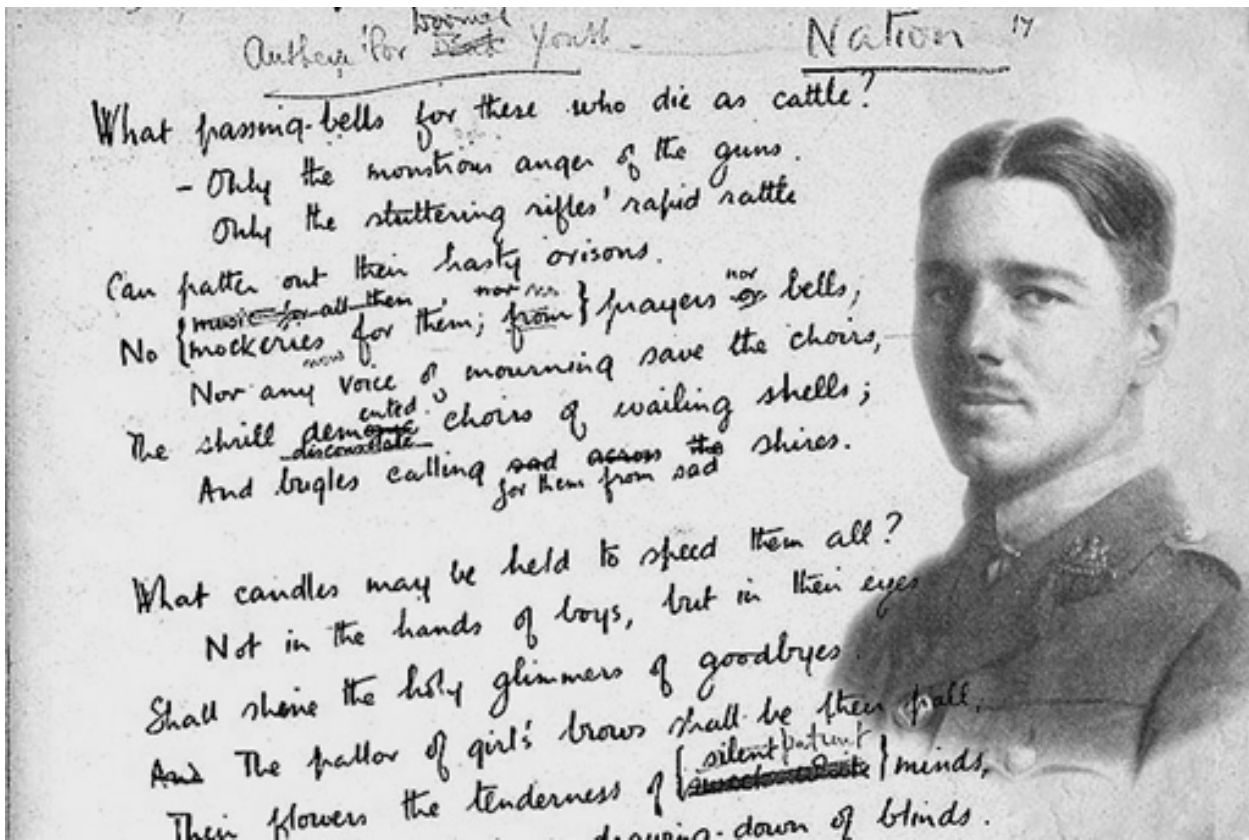 Anthem for Doomed Dead Youth. Nation 17
What passing-bells for these who die as cattle?
- Only the monstrous anger of the guns.
Only the stuttering rifles' rapid rattle
Can patter out their hasty orisons.
music for all them, nor no
No { mockeries for them; from } prayers nor or bells;
Nor any voice of mourning save the choirs,
The shrill demented choirs of wailing shells;
disconsolate
And bugles calling sad across the shires.
for them from sad
What candles may be held to speed them all?
Not in the hands of boys, but in their eyes
Shall shine the holy glimmers of goodbyes.
And The pallor of girl's brows shall be their pall,
silent patient
Their flowers the tenderness of { } minds,
drawing-down of blinds.